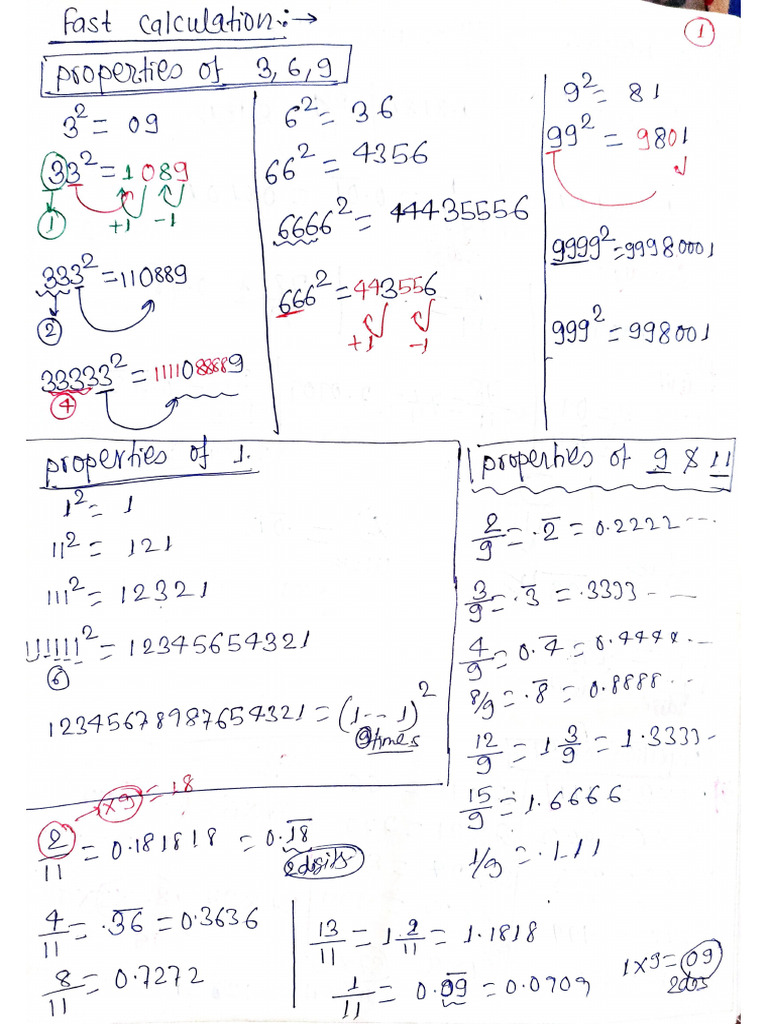 fast calculation:→
1
properties of 3, 6, 9
3² = 09
33² = 1089
1
+1 -1
333² = 110889
2
33333² = 1111088889
4
6² = 36
66² = 4356
6666² = 44435556
666² = 443556
+1 -1
9² = 81
99² = 9801
9999² = 99980001
999² = 998001
properties of 1.
1² = 1
11² = 121
111² = 12321
111111² = 12345654321
6
12345678987654321 = (1--1)²
9times
properties of 9 & 11
2/9 = .2̅ = 0.2222...
3/9 = .3̅ = .3333- --
4/9 = 0.4̅ = 0.4444..
8/9 = .8̅ = 0.8888..
12/9 = 1 3/9 = 1.3333-
15/9 = 1.6666
1/9 = .111
×9 = 18
2/11 = 0.181818 = 0.1̅8̅
2 digits
4/11 = .3̅6̅ = 0.3636
8/11 = 0.7272
13/11 = 1 2/11 = 1.1818
1/11 = 0.0̅9̅ = 0.0909
1×9 = 09